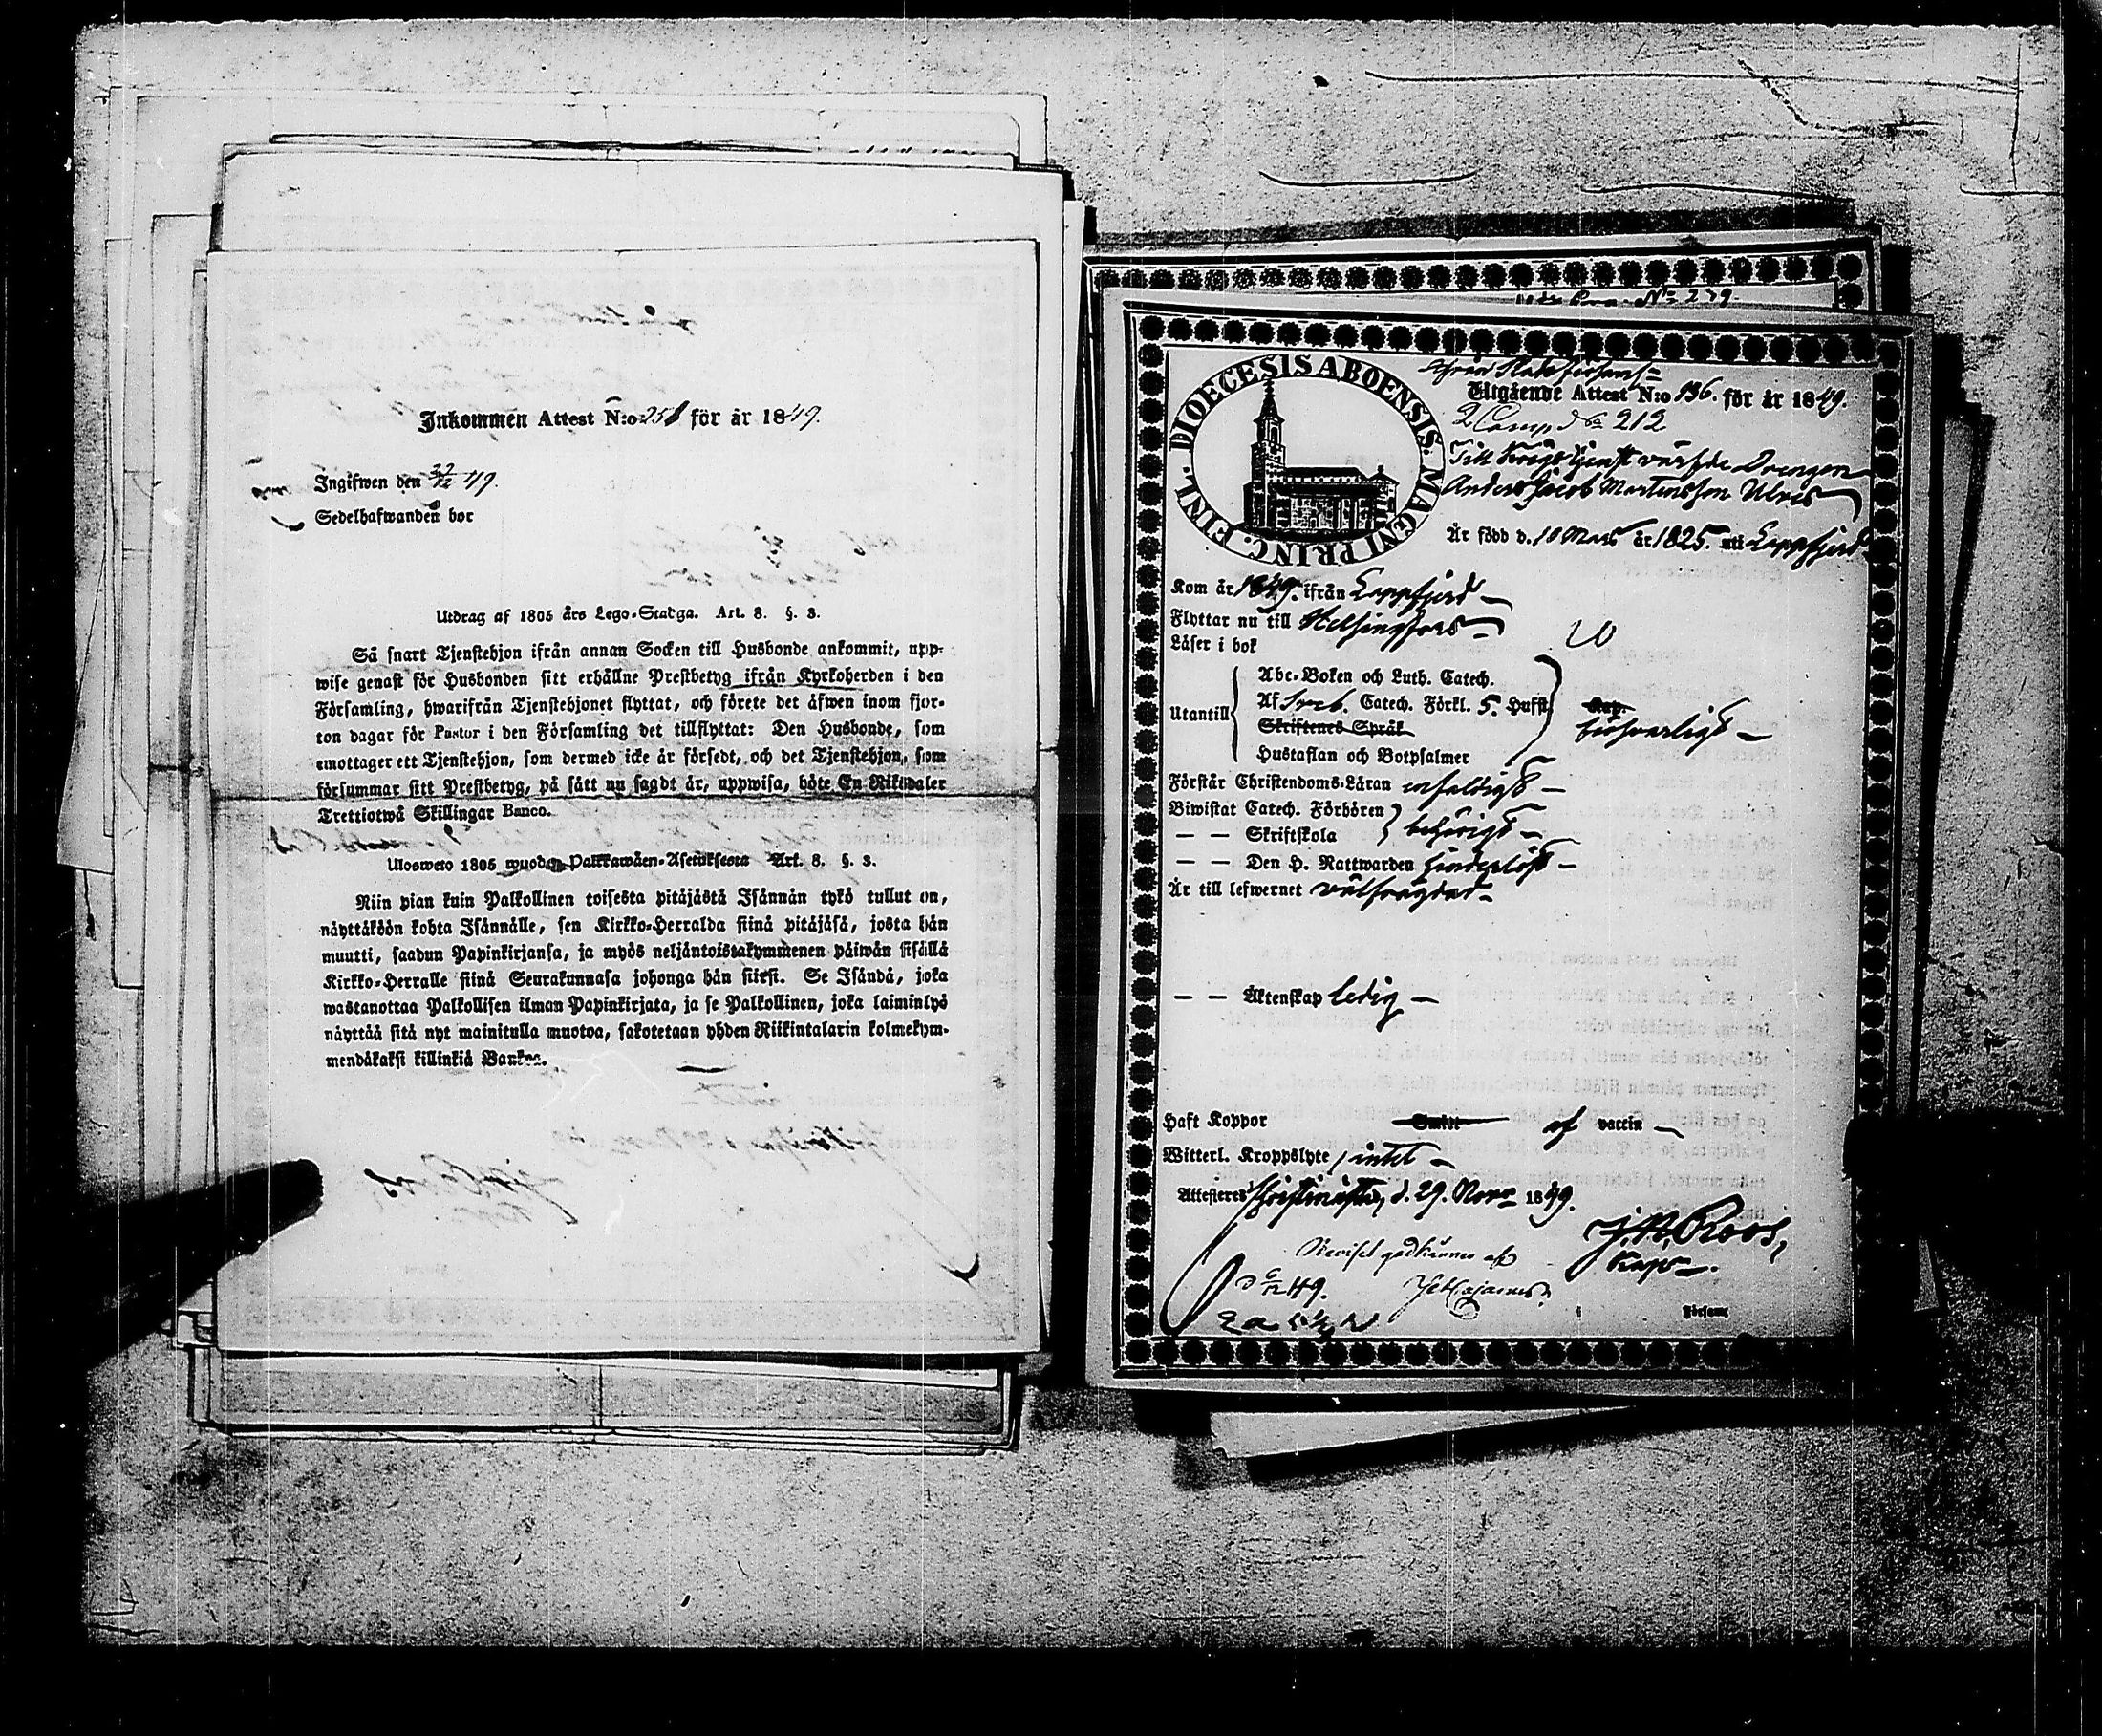 Inkommen Attest N:o 258 för år 1849.
Ingifwen den 49.
Sedelhafwanden bor
Utdrag af 1805 års Lego-Stadga. Art. 8. §. 3.
Så snart Tjenstehjon ifrån annan Socken till Husbonde ankommit, upp-
wise genast för Husbonden sitt erhållne Prestbetyg ifrån Kyrkoherden i den
Församling, hwarifrån Tjenstehjonet flyttat, och förete det äfwen inom fjor-
ton dagar för Pastor i den Församling det tillflyttat: Den Husbonde, som
emottager ett Tjenstehjon, som dermed icke är försedt, och det Tjenstehjon, som
försummar sitt Prestbetyg, på sätt nu sagdt är, uppwisa, böte En Riksdaler
Trettiotwå Skillingar Banco.
Ulosweto 1805 wuoden Palkkawäen-Asetuksesta Art. 8. §. 3.
Niin pian kuin Palkollinen toisesta pitäjästä Isännän tykö tullut on,
näyttäköön kohta Isännälle, sen Kirkko-Herralda siinä pitäjäsä, josta hän
muutti, saadun Papinkirjansa, ja myös neljäntoistakymmenen päiwän sisällä
Kirkko-Herralle siinä Seurakunnasa johonga hän siirsi. Se Isändä, joka
wastanottaa Palkollisen ilman Papinkirjata, ja se Palkollinen, joka laiminlyö
näyttää sitä nyt mainitulla muotoa, sakotetaan yhden Riikintalarin kolmekym-
mendäkaksi killinkiä Bankos.
N:o 279.
DIOECESIS ABOENSIS. MAGNI PRINC. FINL.
Från Stads församl:
Utgående Attest N:o 136. för år 1849.
2 Comp. No 212
Till Krigstjenst värfde Drengen
Anders Jacob Martensson Ulves
Är född d. 10 Mars år 1825. uti Lappfjerd
Kom år 1849. ifrån Lappfjerd
Flyttar nu till Helsingfors
Läser i bok
Utantill
Abc-Boken och Luth. Catech.
Af Sveb. Catech. Förkl. 5. Hufst.
Skriftenes Språk
Hustaflan och Botpsalmer
försvarligt
Förstår Christendoms-Läran enfaldigt
Biwistat Catech. Förhören
— — Skriftskola
behörigt
— — Den H. Nattwarden hinderlöst
Är till lefwernet välfrägdad
— — Äktenskap ledig
Haft Koppor af vaccin
Witterl. Kroppslyte intet
Attesteres Christinestad, d. 29. Novr 1849.
J. N. Roos,
Kapn.
Revisel godkännes af
d 6/12 49.
Församl